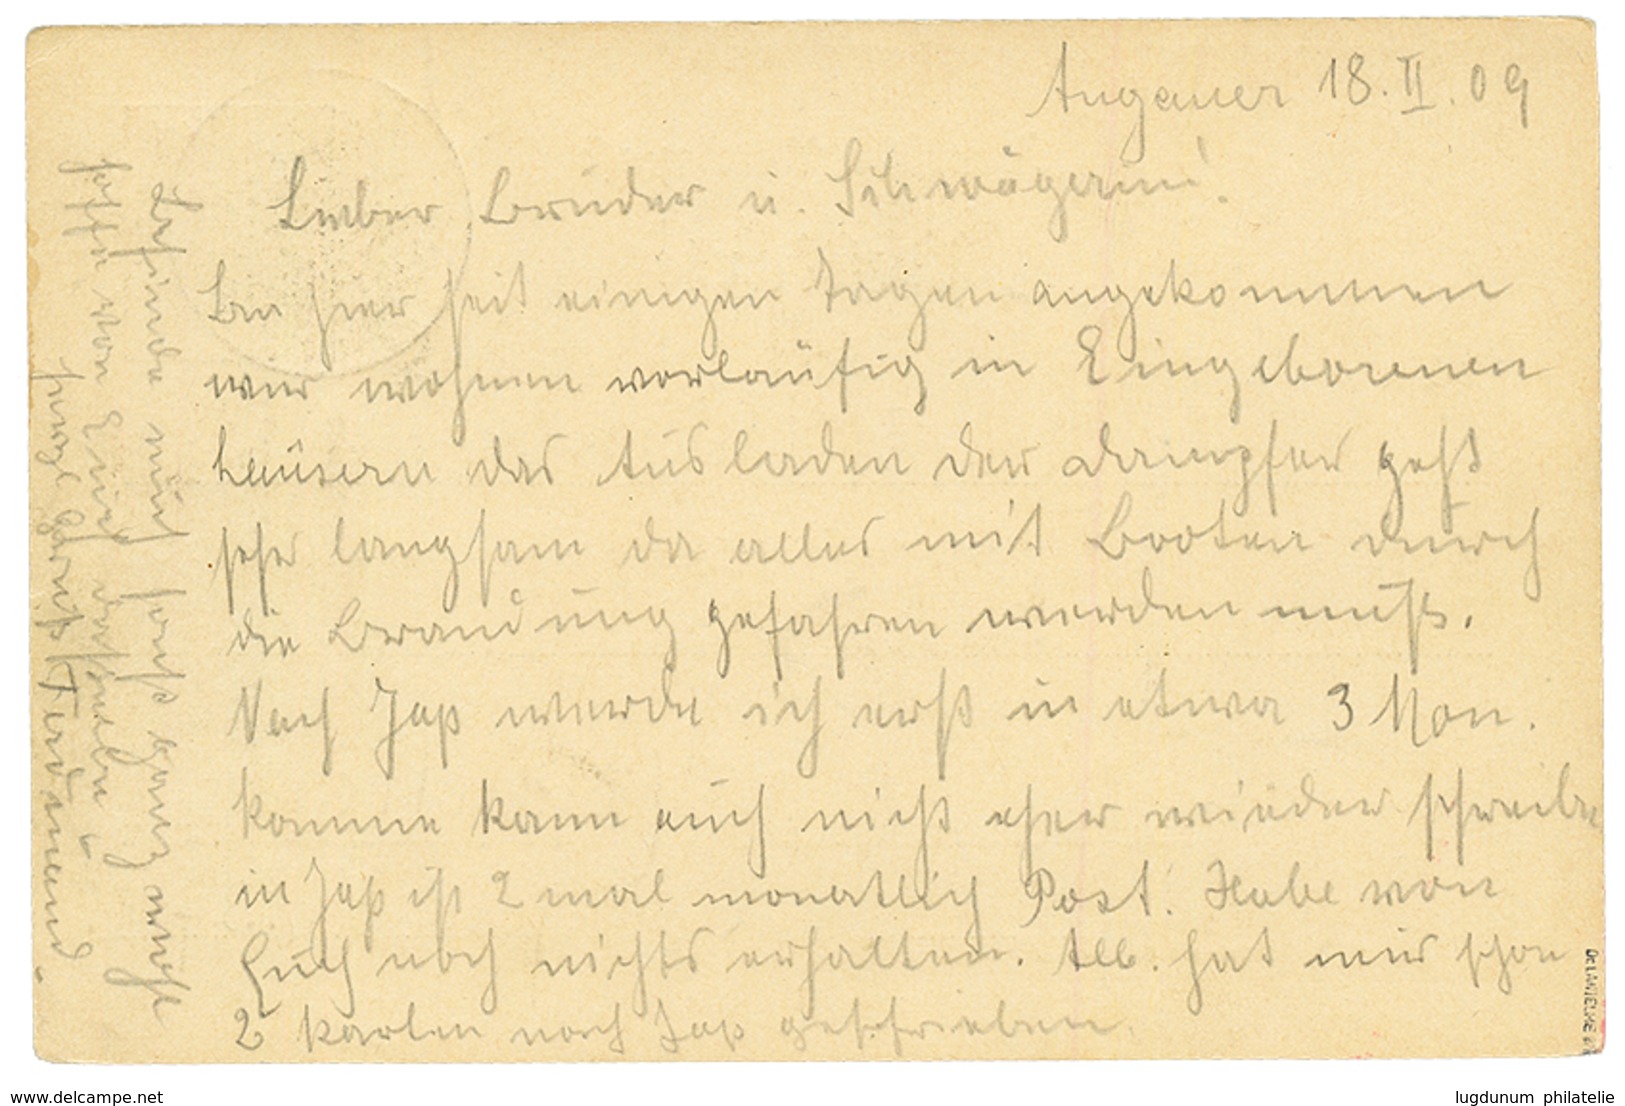 Angauer 18. II. 09
Lieber Bruder u. Schwägerin!
Bin hier seit einigen Tagen angekommen
wir wohnen vorläufig in Eingeborenen
häusern das Ausladen der Dampfer geht
sehr langsam da alles mit Booten durch
die Brandung gefahren werden muß.
Nach Jap werde ich erst in etwa 3 Mon.
komme kann auch nicht eher wieder schreibe
in Jap ist 2 mal monatlich Post. Habe von
Euch noch nichts erhalten. Alb. hat mir schon
2 Karten nach Jap geschrieben.
Befinde mich sonst ganz wohl
hoffe von Euch dasselbe
herzl. Gruß Ferdinand.
www.delcampe.net
lugdunum philatelie